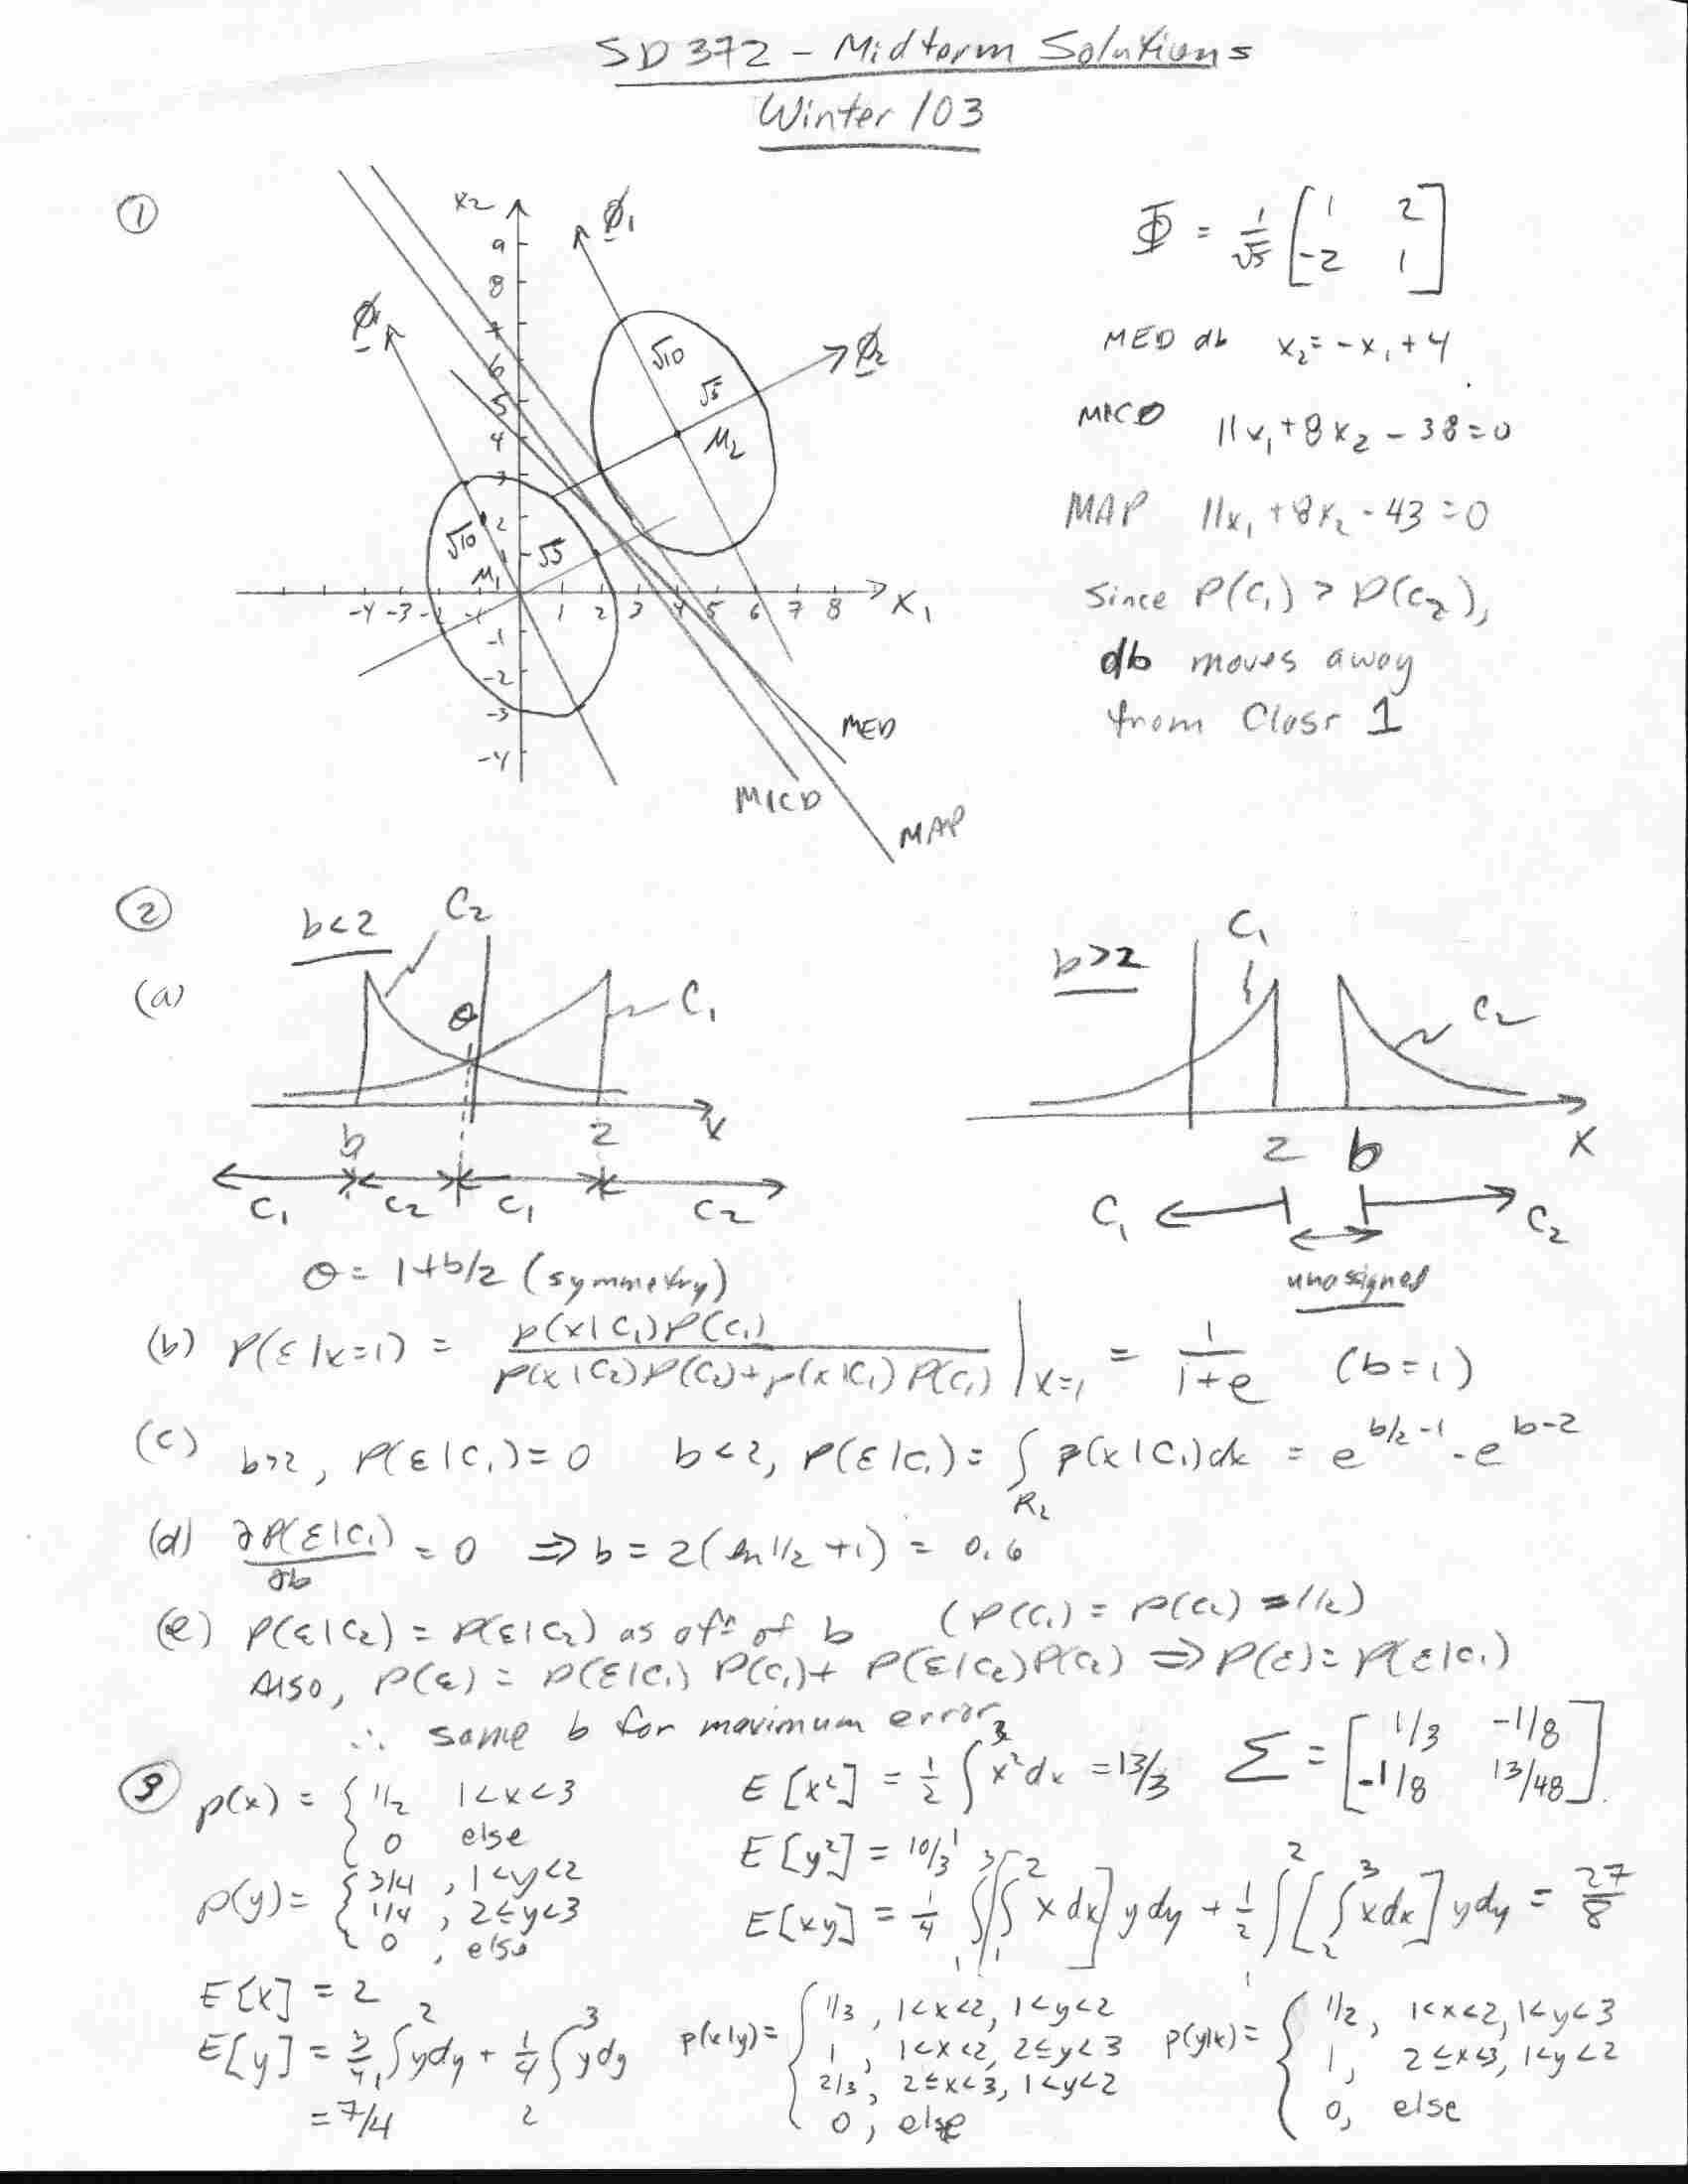 SD372 - Midterm Solutions
Winter /03
①
x2
ϕ1
ϕ1
ϕ2
9
8
7
6
5
4
3
2
1
√10
√5
M2
√10
√5
M1
-4 -3 -2 -1 1 2 3 4 5 6 7 8 X1
-1
-2
-3
-4
MED
MICD
MAP
Φ = 1/√5 [1 2
-2 1]
MED db x2 = -x1 + 4
MICD 11x1 + 8x2 - 38 = 0
MAP 11x1 + 8x2 - 43 = 0
Since P(C1) > P(C2),
db moves away
from Class 1
②
(a)
b<2
C2
θ
C1
b 2 x
C1 C2 C1 C2
θ = 1+b/2 (symmetry)
b>2
C1
C2
2 b x
C1 C2
unassigned
(b) P(ε|x=1) = p(x|C1)P(C1) / p(x|C2)P(C2)+p(x|C1)P(C1) |x=1 = 1/1+e (b=1)
(c) b>2, P(ε|C1) = 0 b<2, P(ε|C1) = ∫R2 p(x|C1)dx = e^b/2-1 - e^b-2
(d) ∂P(ε|C1)/∂b = 0 ⇒ b = 2(ln 1/2 +1) = 0.6
(e) P(ε|C2) = P(ε|C2) as a fn of b (P(C1) = P(C2) = 1/2)
Also, P(ε) = P(ε|C1) P(C1) + P(ε|C2)P(C2) ⇒ P(ε) = P(ε|C1)
∴ same b for maximum error
③ p(x) = { 1/2 1<x<3
0 else
p(y) = { 3/4, 1<y<2
1/4, 2≤y<3
0, else
E[x] = 2
E[y] = 3/4 ∫₁² ydy + 1/4 ∫₂³ ydy
= 7/4
E[x²] = 1/2 ∫₁³ x²dx = 13/3
Σ = [1/3 -1/8
-1/8 13/48]
E[y²] = 10/3
E[xy] = 1/4 ∫₁³[∫₁² x dx] y dy + 1/2 ∫₁²[∫₂³ x dx] y dy = 27/8
p(x|y) = { 1/3, 1<x<2, 1<y<2
1, 1<x<2, 2≤y<3
2/3, 2≤x<3, 1<y<2
0, else
p(y|x) = { 1/2, 1<x<2, 1<y<3
1, 2≤x<3, 1<y<2
0, else